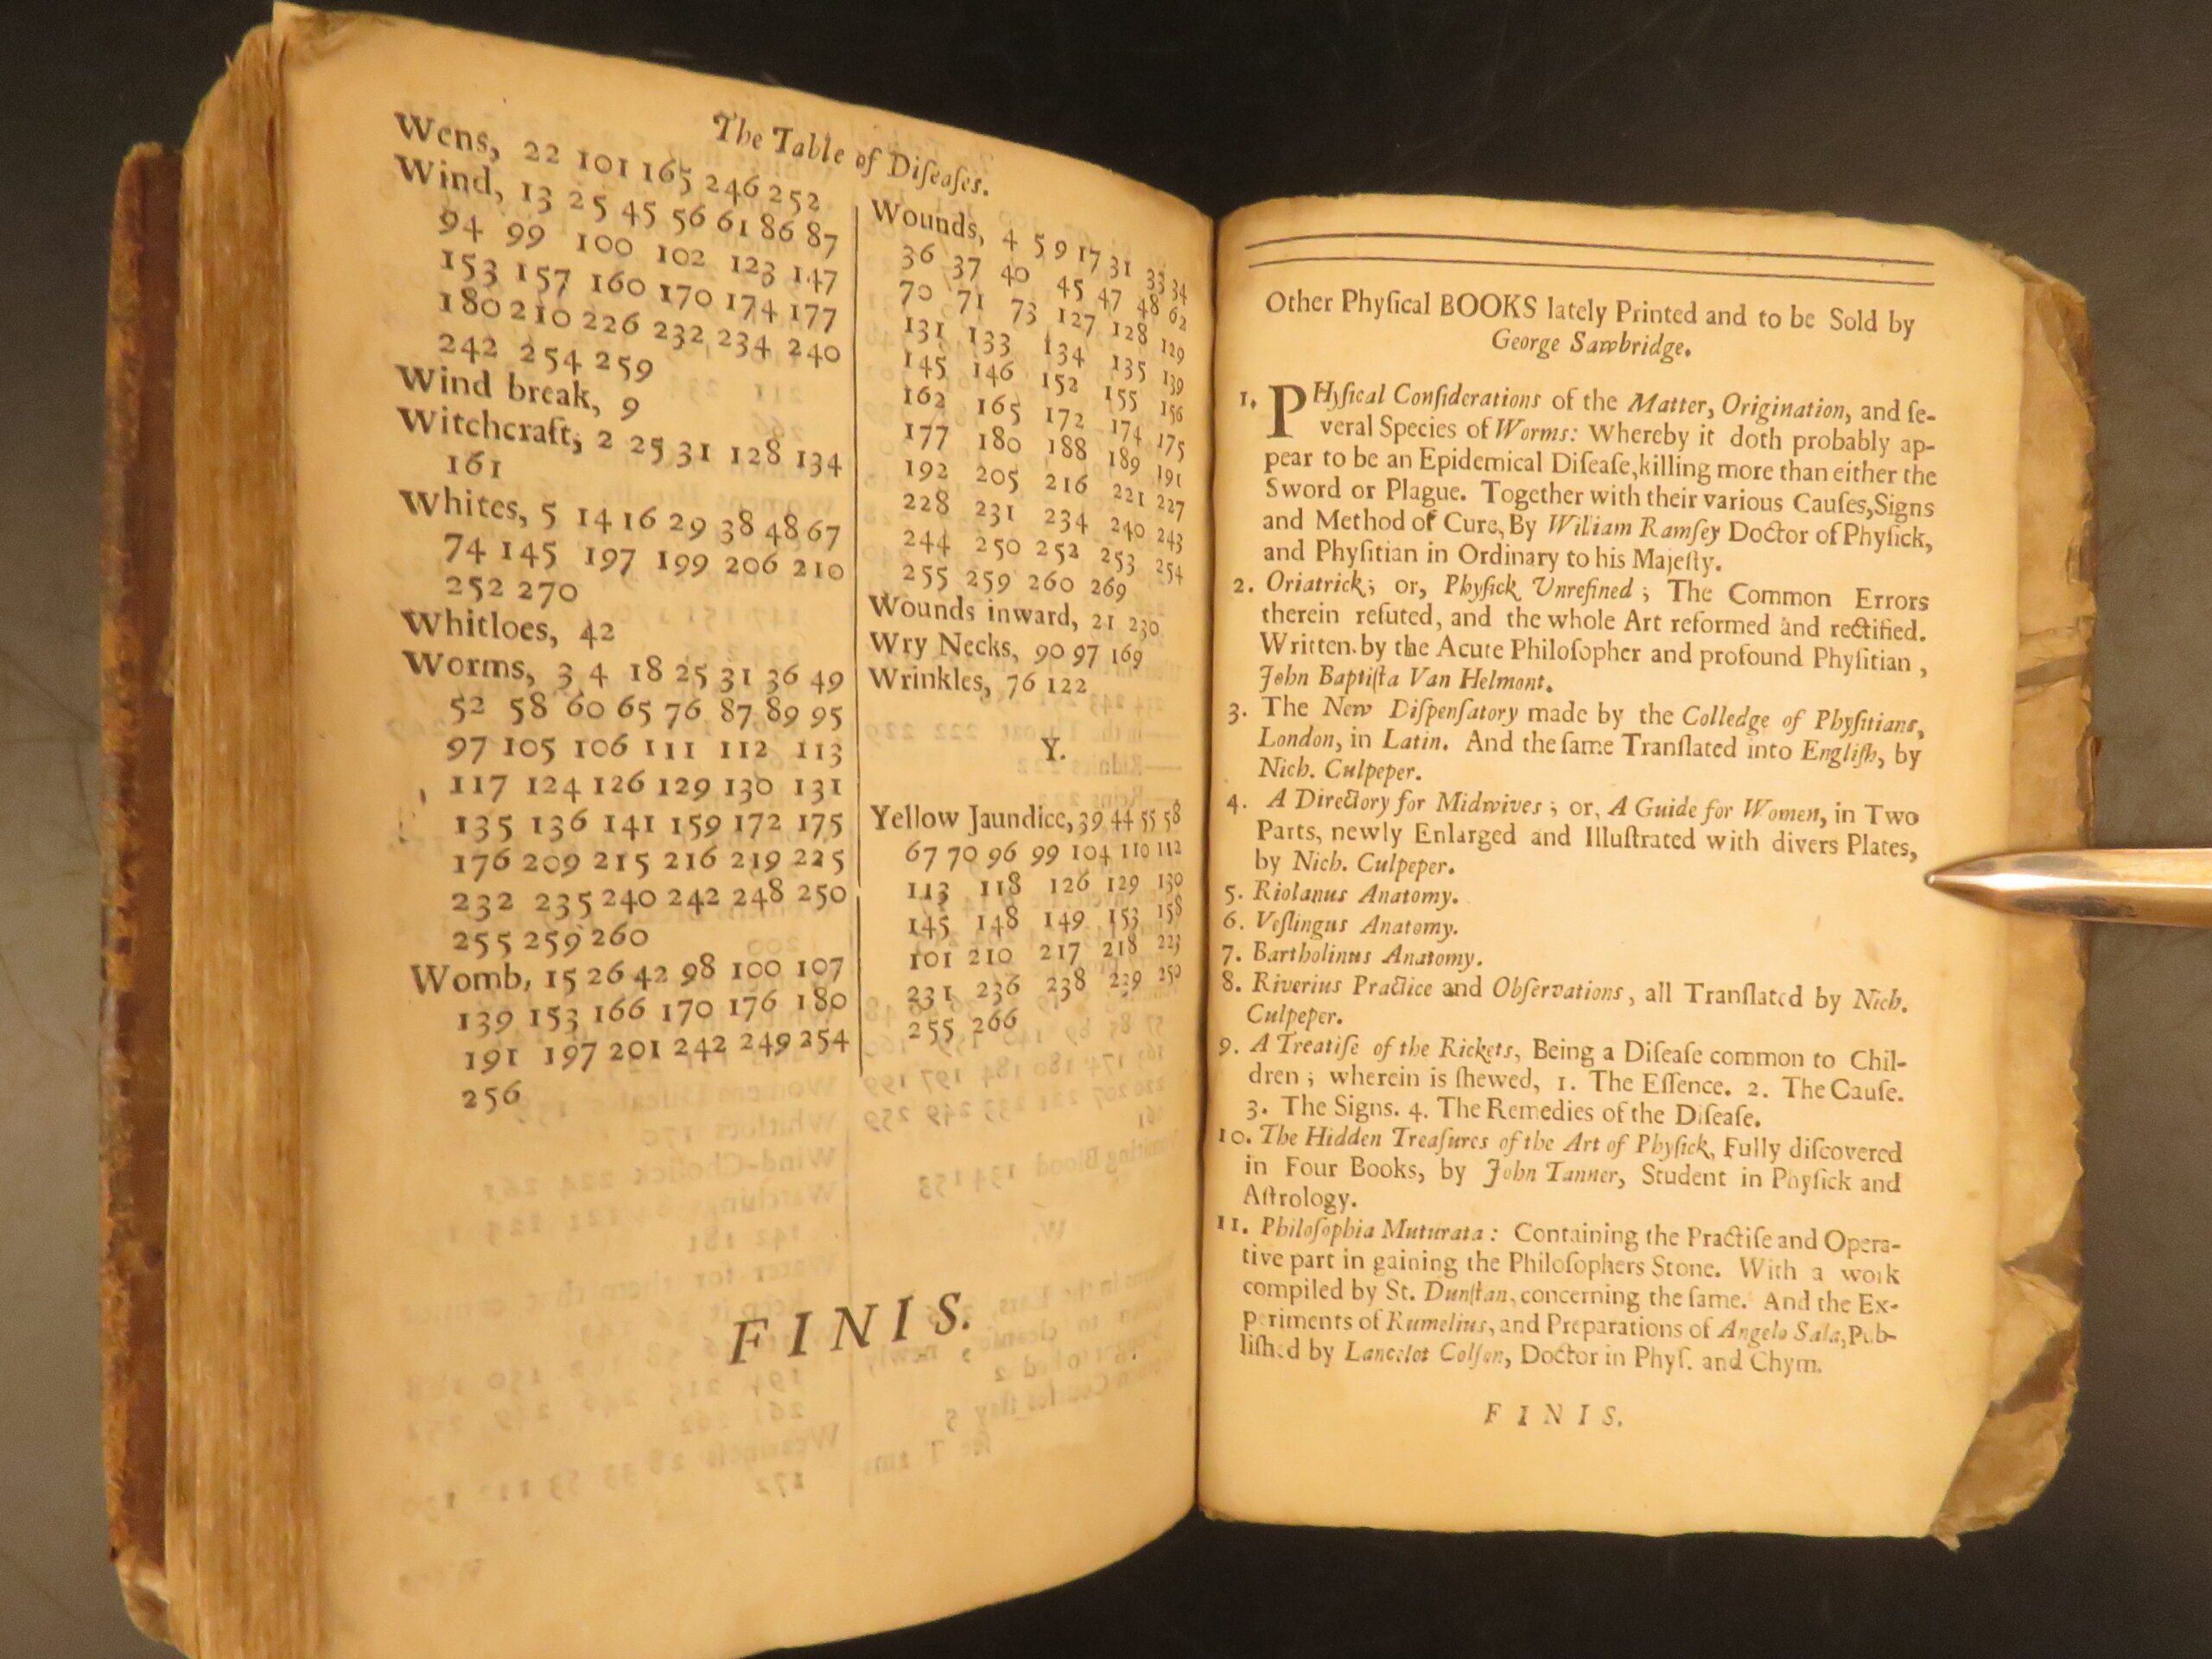 The Table of Diſeaſes.
Wens, 22 101 165 246 252
Wind, 13 25 45 56 61 86 87
94 99 100 102 123 147
153 157 160 170 174 177
180 210 226 232 234 240
242 254 259
Wind break, 9
Witchcraft, 2 25 31 128 134
161
Whites, 5 14 16 29 38 48 67
74 145 197 199 206 210
252 270
Whitloes, 42
Worms, 3 4 18 25 31 36 49
52 58 60 65 76 87 89 95
97 105 106 111 112 113
117 124 126 129 130 131
135 136 141 159 172 175
176 209 215 216 219 225
232 235 240 242 248 250
255 259 260
Womb, 15 26 42 98 100 107
139 153 166 170 176 180
191 197 201 242 249 254
256
Wounds, 4 5 9 17 31 33 34
36 37 40 45 47 48 62
70 71 73 127 128 129
131 133 134 135 139
145 146 152 155 156
162 165 172 174 175
177 180 188 189 191
192 205 216 221 227
228 231 234 240 243
244 250 252 253 254
255 259 260 269
Wounds inward, 21 230
Wry Necks, 90 97 169
Wrinkles, 76 122
Y.
Yellow Jaundice, 39 44 55 58
67 70 96 99 104 110 112
113 118 126 129 130
145 148 149 153 158
101 210 217 218 223
231 236 238 239 250
255 266
FINIS.
Other Phyſical BOOKS lately Printed and to be Sold by
George Sawbridge.
1. PHyſical Conſiderations of the Matter, Origination, and ſe-
veral Species of Worms: Whereby it doth probably ap-
pear to be an Epidemical Diſeaſe, killing more than either the
Sword or Plague. Together with their various Cauſes, Signs
and Method of Cure, By William Ramſey Doctor of Phyſick,
and Phyſitian in Ordinary to his Majeſty.
2. Oriatrick; or, Phyſick Unrefined; The Common Errors
therein refuted, and the whole Art reformed and rectified.
Written by the Acute Philoſopher and profound Phyſitian,
John Baptiſta Van Helmont.
3. The New Diſpenſatory made by the Colledge of Phyſitians,
London, in Latin. And the ſame Tranſlated into Engliſh, by
Nich. Culpeper.
4. A Directory for Midwives; or, A Guide for Women, in Two
Parts, newly Enlarged and Illuſtrated with divers Plates,
by Nich. Culpeper.
5. Riolanus Anatomy.
6. Veſlingus Anatomy.
7. Bartholinus Anatomy.
8. Riverius Practice and Obſervations, all Tranſlated by Nich.
Culpeper.
9. A Treatiſe of the Rickets, Being a Diſeaſe common to Chil-
dren; wherein is ſhewed, 1. The Eſſence. 2. The Cauſe.
3. The Signs. 4. The Remedies of the Diſeaſe.
10. The Hidden Treaſures of the Art of Phyſick, Fully diſcovered
in Four Books, by John Tanner, Student in Phyſick and
Aſtrology.
11. Philoſophia Muturata: Containing the Practiſe and Opera-
tive part in gaining the Philoſophers Stone. With a work
compiled by St. Dunſtan, concerning the ſame. And the Ex-
periments of Rumelius, and Preparations of Angelo Sala, Pub-
liſhed by Lancelot Colſon, Doctor in Phyſ. and Chym.
FINIS.